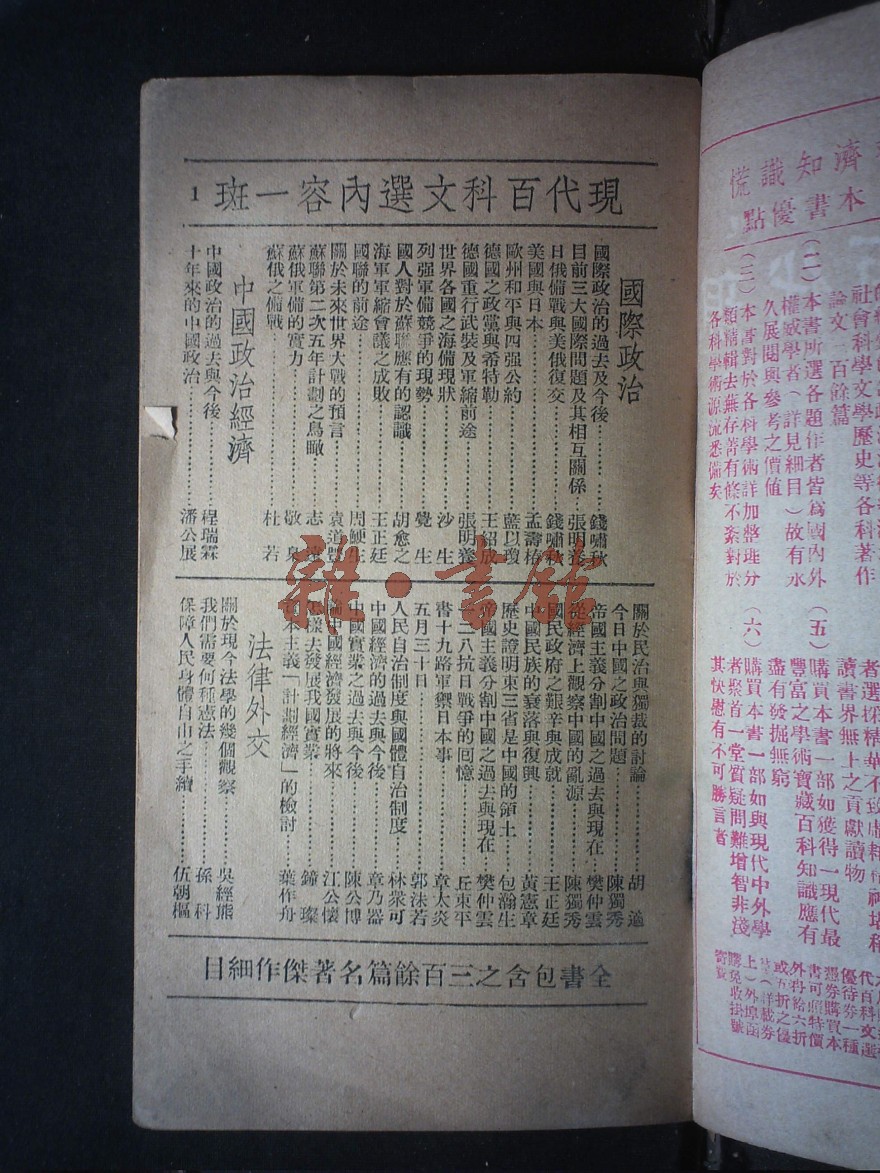 現代百科文選內容一班 1
國際政治
國際政治的過去及今後……錢嘯秋
目前三大國際問題及其相互關係…張明養
日俄備戰與美俄復交……錢嘯秋
美國與日本……孟壽椿
歐州和平與四强公約……藍以瓊
德國之政黨與希特勒……王紹成
德國重行武裝及軍縮前途……張明養
世界各國之海備現狀……沙 生
列强軍備競爭的現勢……覺 生
國人對於蘇聯應有的認識……胡愈之
海軍軍縮會議之成敗……王正廷
國聯的前途……周鯁生
關於未來世界大戰的預言……袁道豐
蘇聯第二次五年計劃之鳥瞰……志 遠
蘇俄軍備的實力……敬
蘇俄之備戰……杜 若
中國政治經濟
中國政治的過去與今後……程瑞霖
十年來的中國政治……潘公展
關於民治與獨裁的討論……胡 適
今日中國之政治問題……陳獨秀
帝國主義分割中國之過去與現在…樊仲雲
從經濟上觀察中國的亂源……陳獨秀
國民政府之艱辛與成就……王正廷
中國民族的衰落與復興……黃憲章
歷史證明東三省是中國的領土…包瀚生
帝國主義分割中國之過去與現在…樊仲雲
一二八抗日戰爭的回憶……丘東平
書十九路軍禦日本事……章太炎
五月三十日……郭沫若
人民自治制度與國體自治制度…林衆可
中國經濟的過去與今後……章乃器
中國實業之過去與今後……陳公博
論中國經濟發展的將來……江公懷
怎樣去發展我國實業……鐘 璨
資本主義「計劃經濟」的檢討…葉作舟
法律外交
關於現今法學的幾個觀察……吳經熊
我們需要何種憲法……孫 科
保障人民身體自由之手續……伍朝樞
全書包含之三百餘篇名著傑作細目
雜·書館
濟知識慌
本書優點
社會科學文學歷史等各科著作
論文三百餘篇
(二)本書所選各題作者皆爲國內外
權威學者(詳見細目)故有永
久展閱與參考之價値
(三)本書對於各科學術詳加整理分
類精輯去蕪存菁有條不紊對於
各科學術源流悉備矣
讀書界無上之貢獻讀物
(五)購買本書一部如獲得一現代最
豐富之學術寶藏百科知識應有
盡有發掘無窮
(六)購買本書一部如與現代中外學
者聚首一堂質疑問難增智非淺
其快慰有不可勝言者
代百科文選
優待券一種
憑券購買本
書可照特價
外再給六折
或五折之優